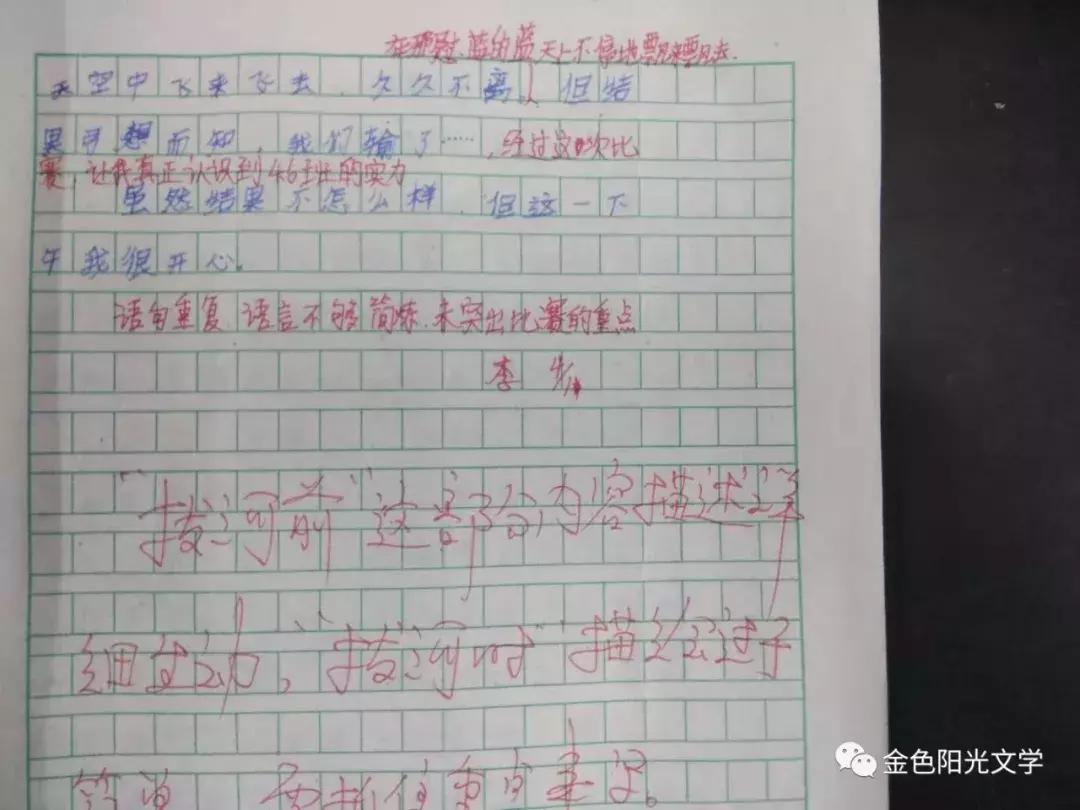 在那慰、蓝的蓝天上不停地飘来飘去.
天空中飞来飞去，久久不离，但结
果可想而知，我们输了……经过这次比
赛，让我真正认识到46班的实力
虽然结果不怎么样，但这一下
午我很开心。
语句重复，语言不够简练，未突出比赛的重点
李
"拔河前"这部分内容描述详
细生动，"拔河时"描绘过于
简单，
金色阳光文学